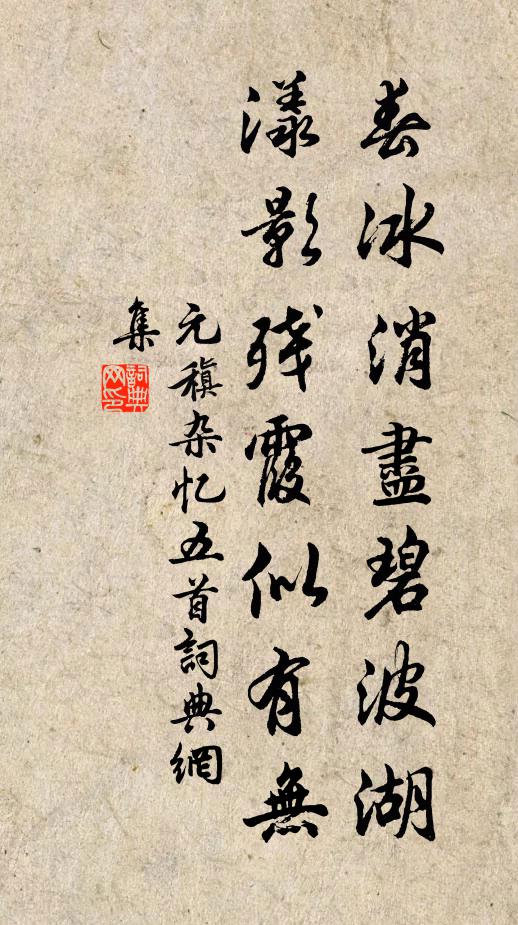 春冰消盡碧波湖
漾影殘霞似有無
元稹杂忆五首詞典網
集
詞典
网印